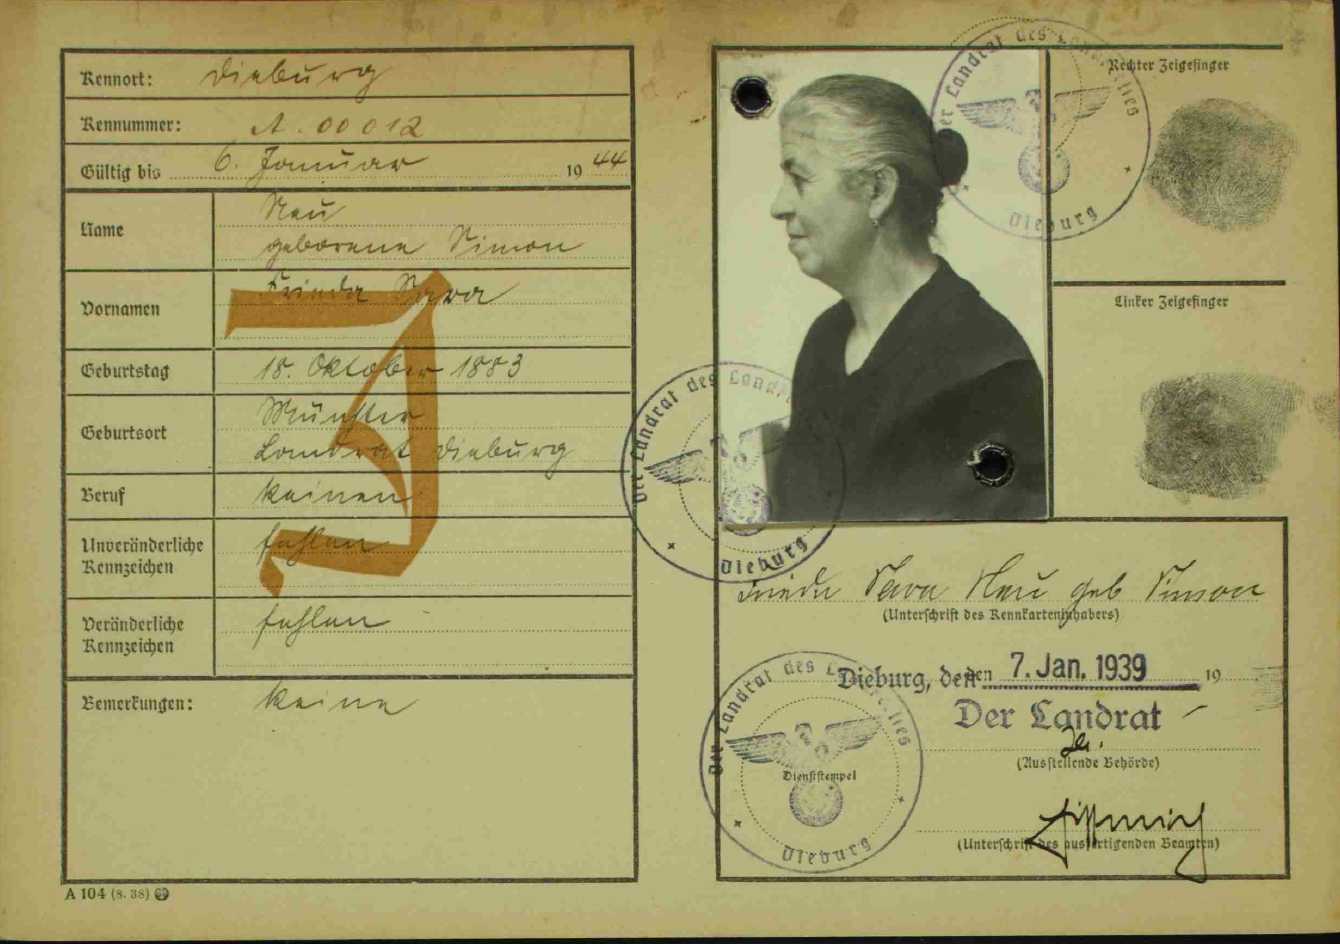 Kennort: Dieburg
Kennummer: A. 00012
Gültig bis 6. Januar 1944
Name Neu
geborene Simon
Vornamen Frieda Sara
J
Geburtstag 18. Oktober 1883
Geburtsort Münster
Landrat Dieburg
Beruf keinen
Unveränderliche Kennzeichen fehlen
Veränderliche Kennzeichen fehlen
Bemerkungen: keine
A 104 (8. 38)
Rechter Zeigefinger
Linker Zeigefinger
Der Landrat des
Dieburg
Der Landrat des
Dieburg
Frieda Sara Neu geb Simon
(Unterschrift des Kennkarteninhabers)
Dieburg, den 7. Jan. 1939 19
Der Landrat
(Ausstellende Behörde)
Der Landrat des
Dienststempel
Dieburg
(Unterschrift des ausfertigenden Beamten)